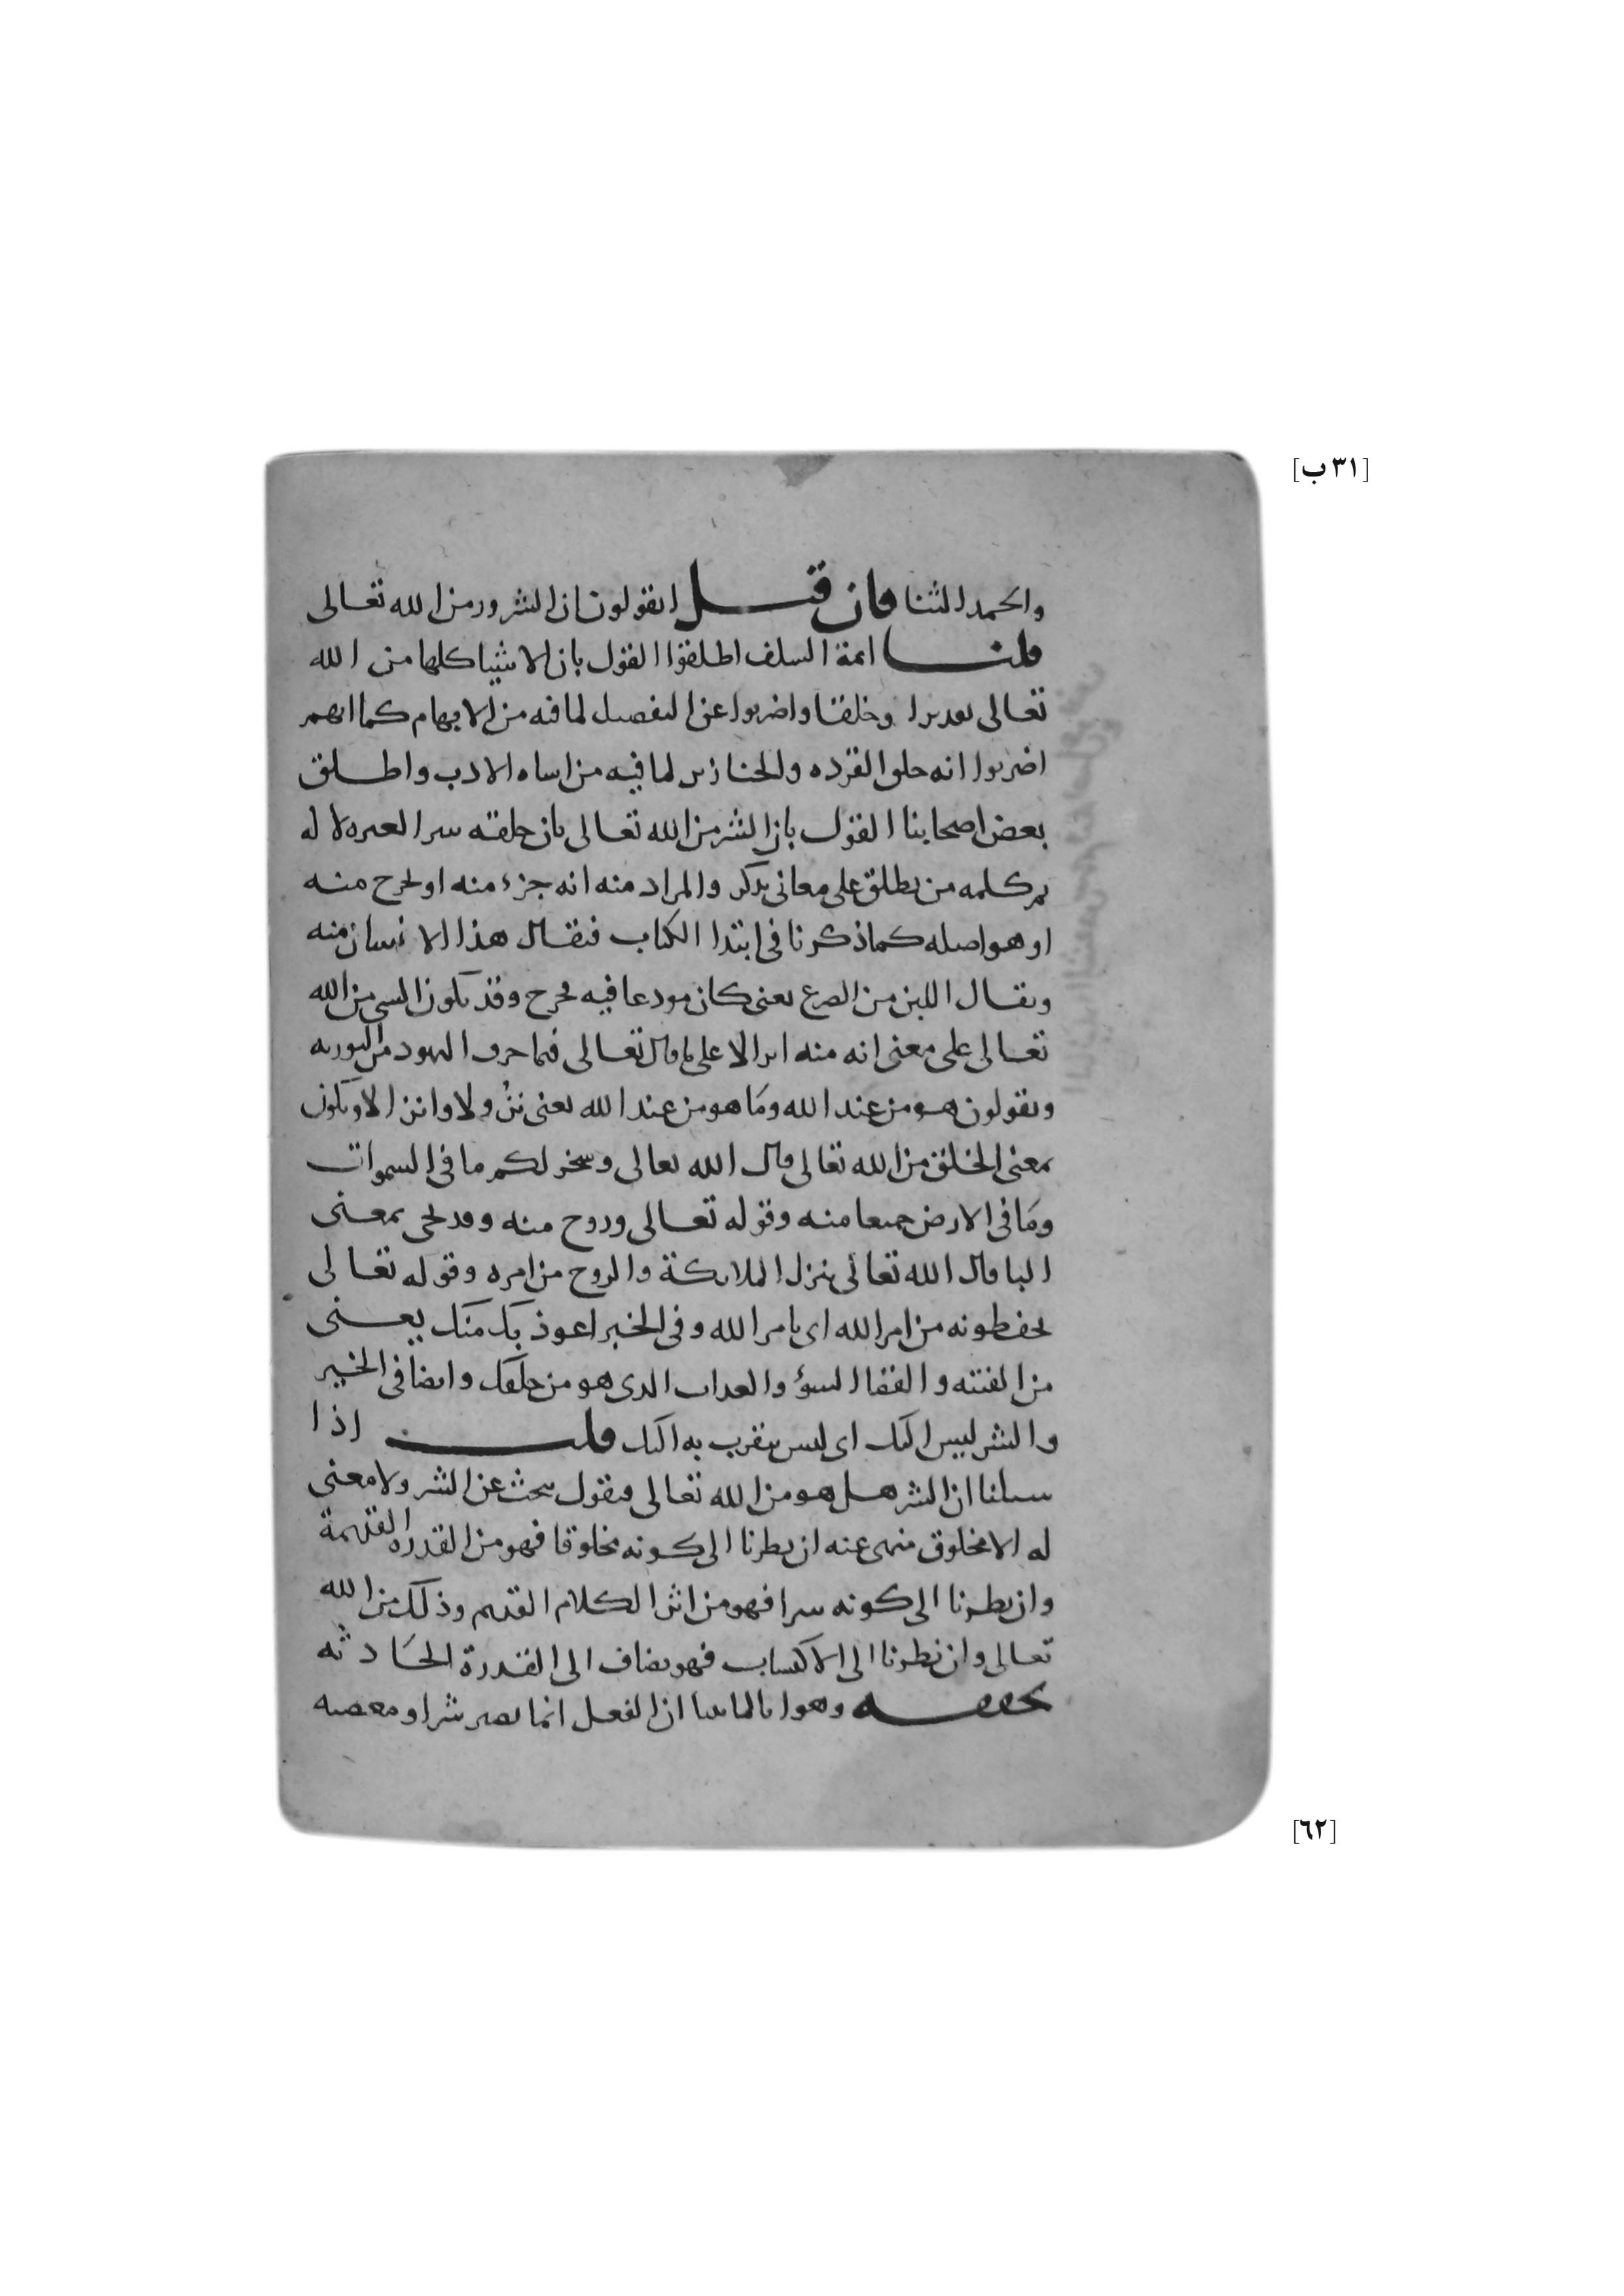 [٣١ ب]
والحمد الثنا فان قيل اتقولون ان الشرور من الله تعالى
قلنا ائمة السلف اطلقوا القول بان الاشيا كلها من الله
تعالى تقديرا وخلقا واضربوا عن التفصيل لما فيه من الايهام كما انهم
اضربوا انه خلق القرده والخنازير لما فيه من اساه الادب واطلق
بعض اصحابنا القول بان الشر من الله تعالى بان خلقه شرا لغيره لا له
ثم كلمه من يطلق على معاني يذكر والمراد منه انه جزء منه او يخرج منه
او هو اصله كما ذكرنا في ابتدا الكتاب فيقال هذا الانسان منه
ويقال اللبن من الضرع يعني كان مودعا فيه فخرج وقد يكون الشي من الله
تعالى على معنى انه منه انزالا على ما قال تعالى فيما حرف اليهود من التوريه
ويقولون هو من عند الله وما هو من عند الله يعني الا ويكون
بمعنى الخلق من الله تعالى قال الله تعالى وسخر لكم ما في السموات
وما في الارض جميعا منه وقوله تعالى وروح منه وقد يجي بمعنى
البا قال الله تعالى ينزل الملائكة والروح من امره وقوله تعالى
يحفظونه من امر الله اى بامر الله وفي الخبر اعوذ بك منك يعني
من الفتنه و القضا السوء والعذاب الذى هو من خلقك وايضا في الخبر
والشر ليس اليك اى ليس يتقرب به اليك قلت اذا
سئلنا ان الشر هل هو من الله تعالى فيقول يبحث عن الشر ولا معنى
له الا مخلوق منهى عنه ان نظرنا الى كونه مخلوقا فهو من القدره القديمة
وان نظرنا الى كونه شرا فهو من اثر الكلام القديم وذلك من الله
تعالى وان نظرنا الى الاكتساب فهو يضاف الى القدرة الحادثه
تحقيقه وهو انا لما بينا ان الفعل انما يصير شرا ومعصيه
[٦٢]